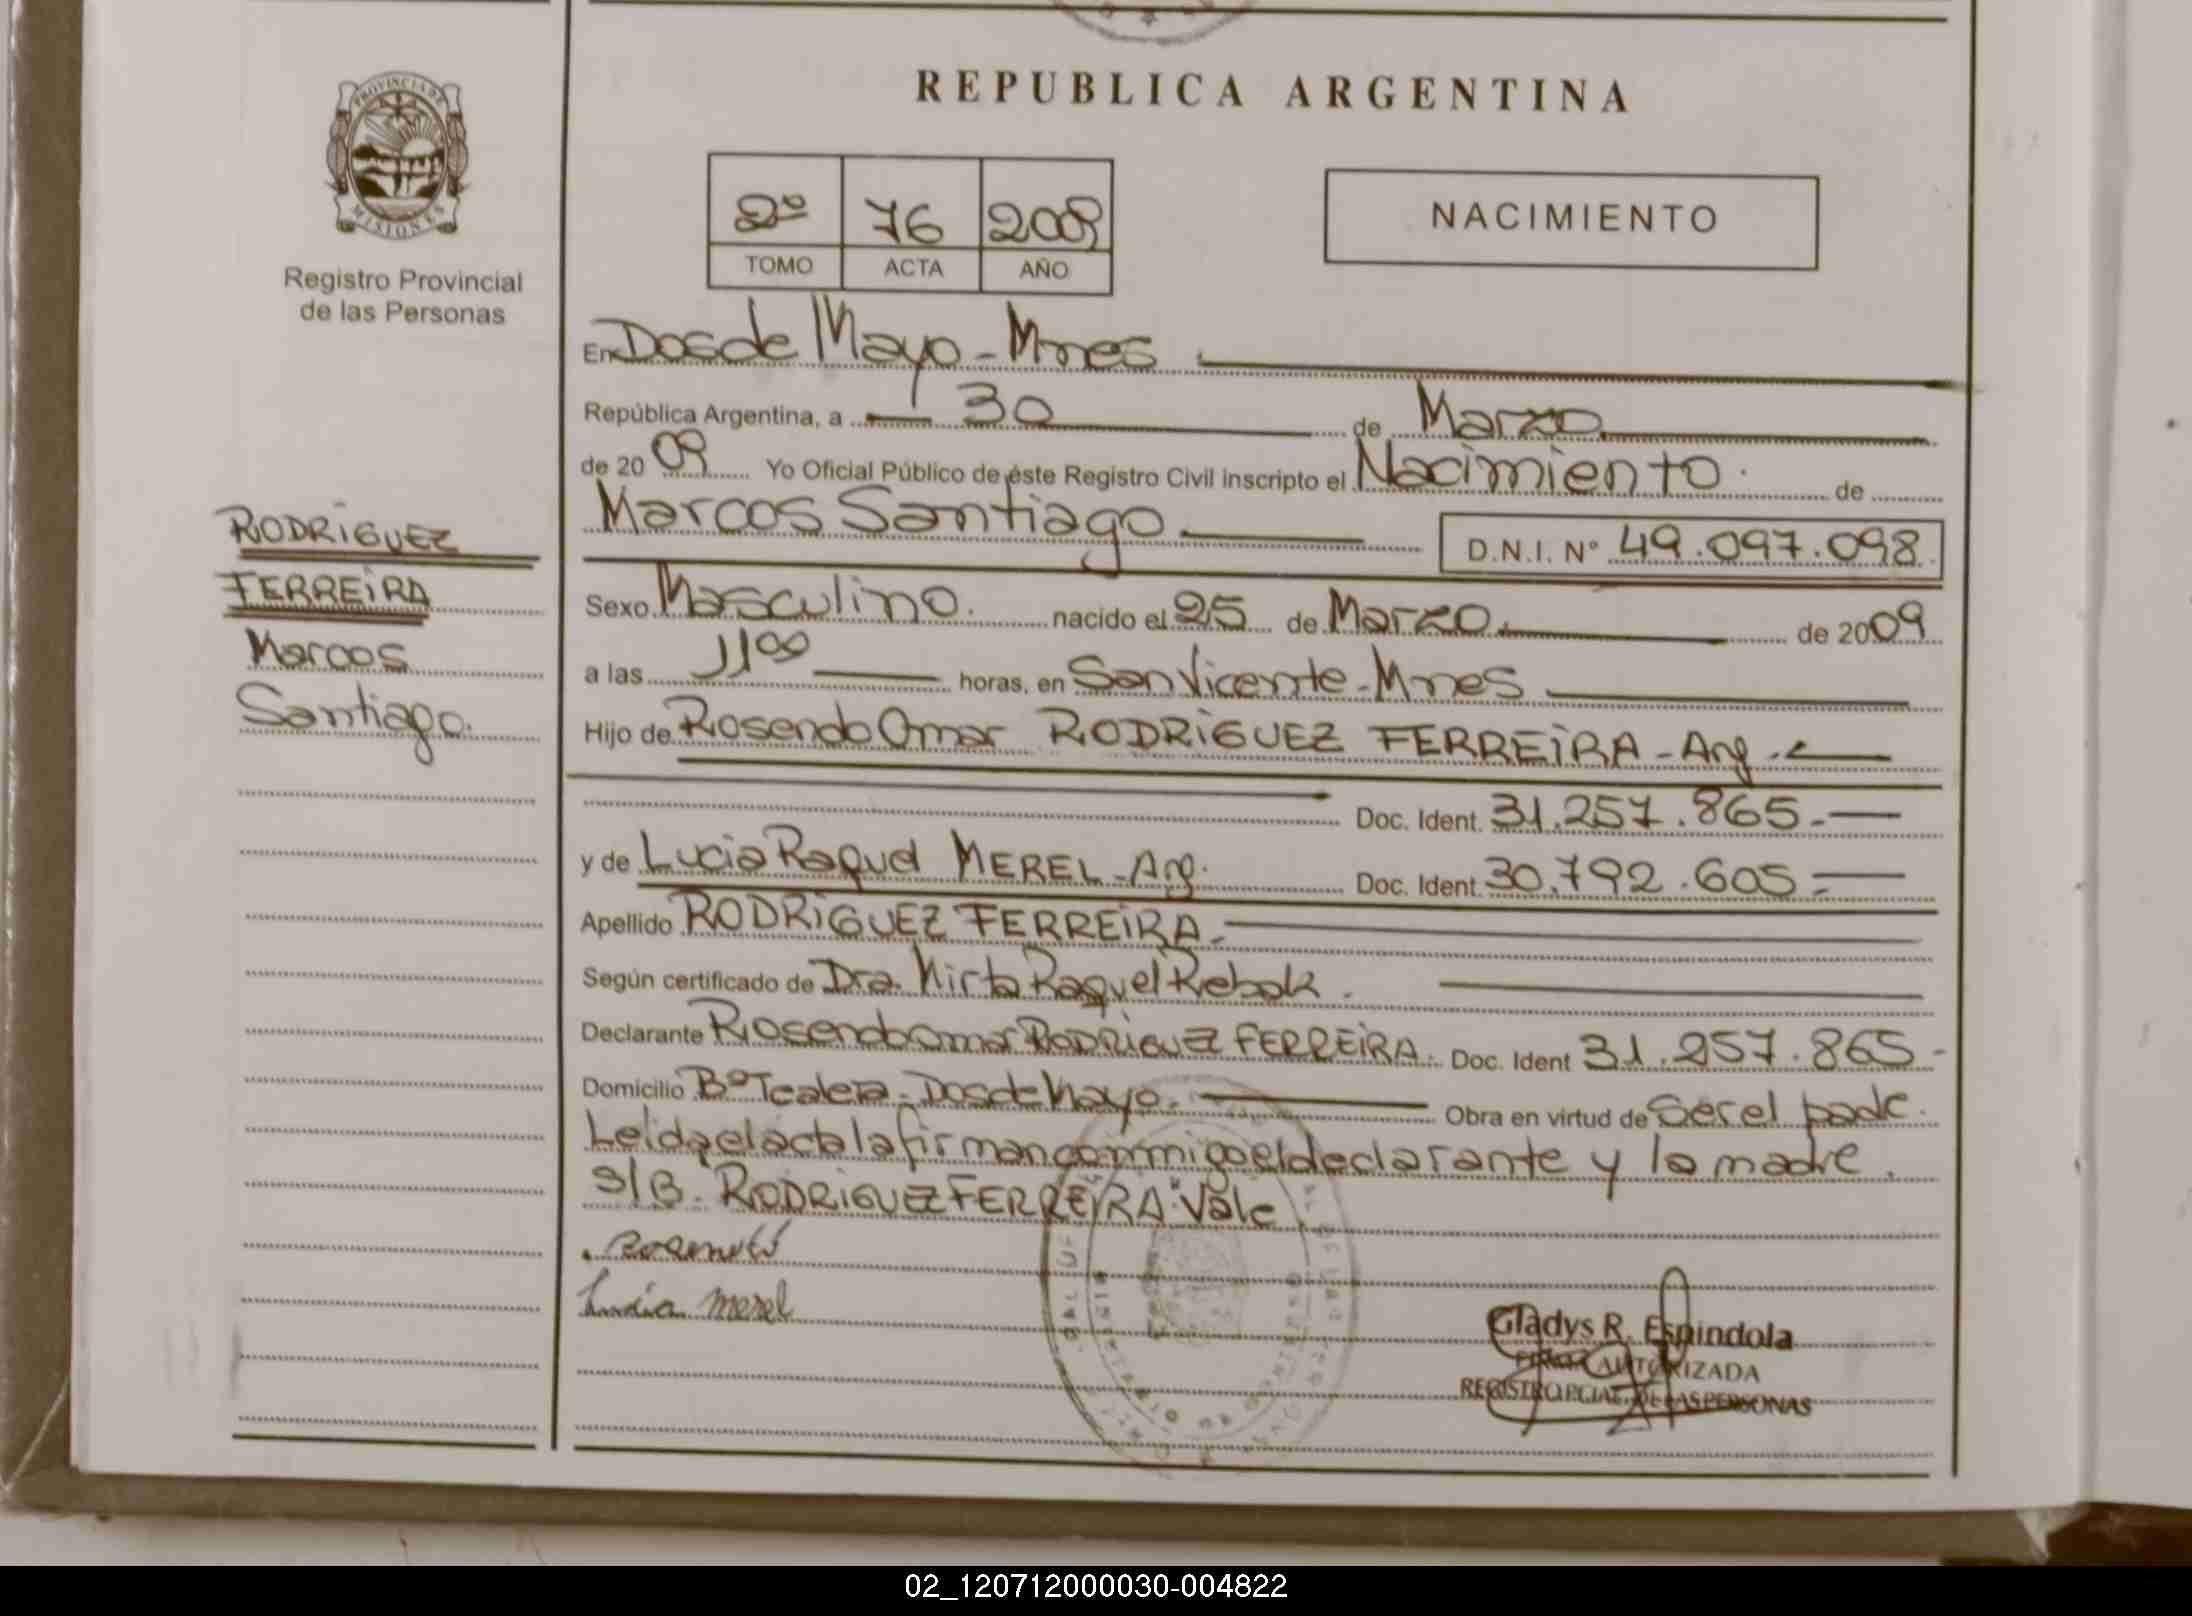 REPUBLICA ARGENTINA
PROVINCIA DE
MISIONES
Registro Provincial
de las Personas
2º 76 2009
TOMO ACTA AÑO
NACIMIENTO
En Dos de Mayo - Mnes
República Argentina, a 30 de Marzo
de 2009 Yo Oficial Público de éste Registro Civil inscripto el Nacimiento. de
Marcos Santiago D.N.I. Nº 49.097.098.
RODRIGUEZ
FERREIRA
Marcos
Santiago.
Sexo Masculino. nacido el 25 de Marzo de 2009
a las 11⁰⁰ horas, en San Vicente - Mnes
Hijo de Rosendo Omar RODRIGUEZ FERREIRA - Arg.
Doc. Ident. 31.257.865.-
y de Lucia Raquel MEREL - Arg. Doc. Ident. 30.792.605 -
Apellido RODRIGUEZ FERREIRA.
Según certificado de Dra. Mirta Raquel Rebak.
Declarante Rosendo Omar RODRIGUEZ FERREIRA. Doc. Ident 31.257.865-
Domicilio Bº Tealera - Dos de Mayo. Obra en virtud de Ser el padre.
Leida el acta la firman conmigo el declarante y la madre.
S/B. "RODRIGUEZ FERREIRA" Vale.
Lucia Merel
Gladys R. Espindola
FIRMA AUTORIZADA
REGISTRO PCIAL. DE LAS PERSONAS
02_120712000030-004822